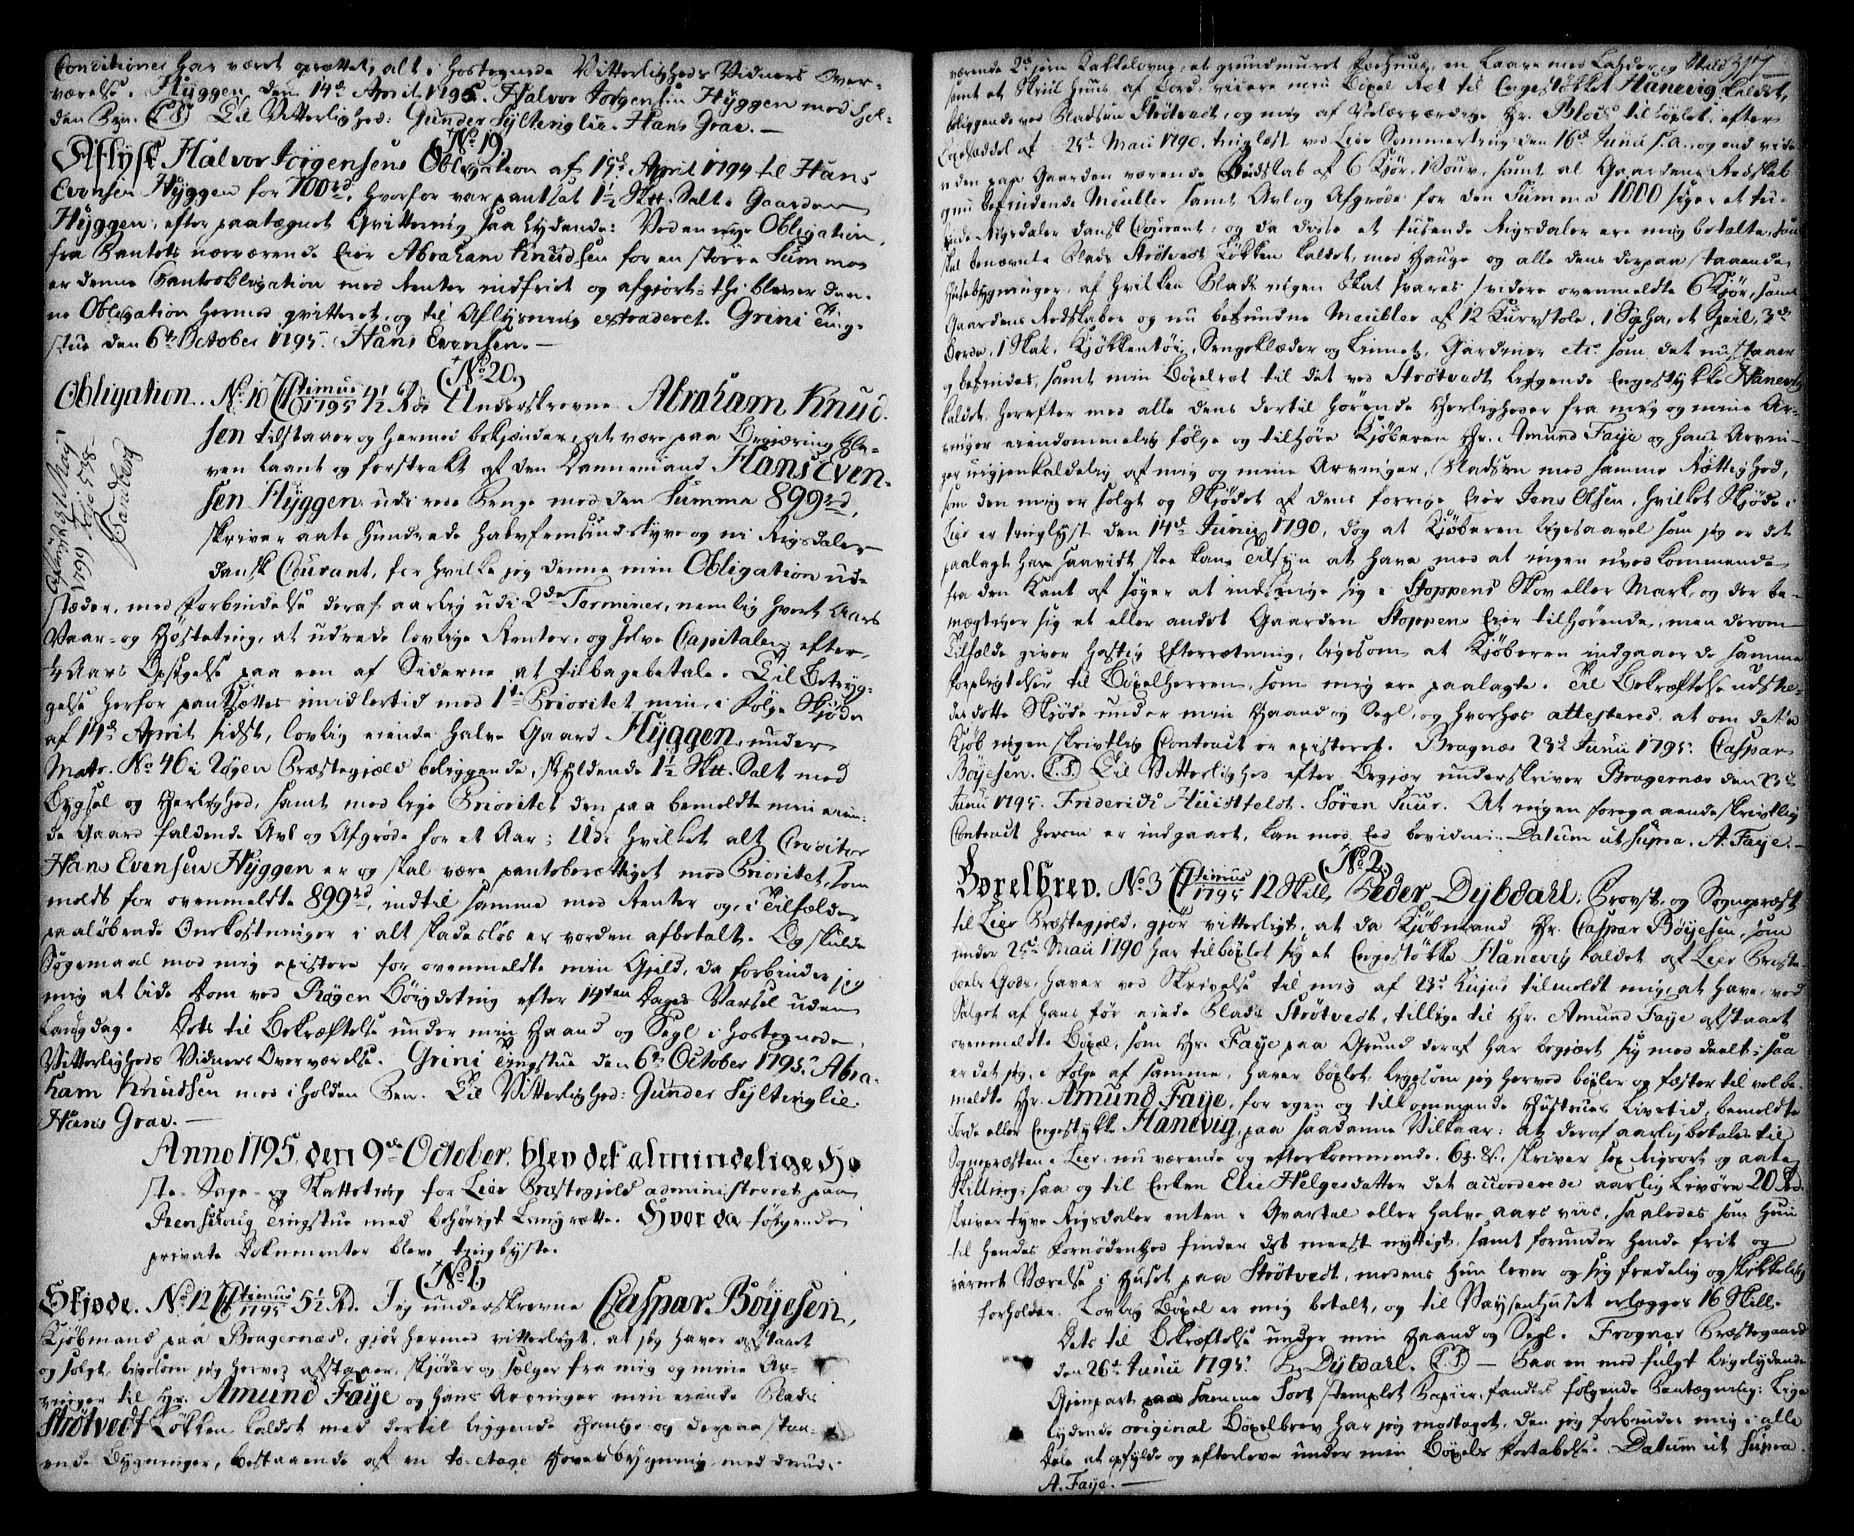 Conditioner har været oprettet, alt i hostegnede Vitterligheds Vidners Over-
værelse. Hÿggen den 14de April 1795. Halvor Jørgensen Hÿggen med hol-
den Pen. (L.S.) Til Vitterlighed: Gunder Gÿltenglie. Hans Grav. —
No. 19.
Aflyst Halvor Jørgensens Obligation af 15de April 1794 til Hans
Evensen Hÿggen for 700rd, hvorfor var pantsat 1½ Skt. Salt i Gaarden
Hÿggen, efter paategnet Qvittering saa lydende: Ved en nye Obligation
fra Pantets nærværende Eier Abraham Knudsen for en større Summa
er denne Pantobligation med Renter indfriet og afgiort; thi bliver den-
ne Obligation hermed qvitteret, og til Aflysning extraderet. Grini Ting-
stue den 6te October 1795. Hans Evensen. —
No. 20.
Obligation. No. 10 Ctimus 1795 4½ Rdr. Underskrevne Abraham Knud-
sen tilstaaer og hermed bekiender, at være paa Begiæring ble-
ven laant og forstrakt af den Dannemand Hans Even-
sen Hÿggen udi rede Penge med den Summa 899rd,
skriver aate Hundrede halvfemsindstyve og ni Rigsdaler
dansk Courant, for hvilke jeg denne min Obligation ud-
stæder, med Forbindelse deraf aarlig udi 2de Terminer, nemlig hvert Aars
Vaar- og Høsteting, at udrede lovlige Renter, og selve Capitalen efter
¼ Aars Opsigelse paa een af Siderne at tilbagebetale. Til Betryg-
gelse herfor pantsættes imidlertid med 1te Prioritet min, i Følge Skjøde
af 14de April sidst, lovlig eiende halve Gaard Hÿggen, under
Matr. No. 46 i Røgen Præstegield beliggende, skyldende 1½ Skt. Salt med
Bygsel og Herlighed, samt med lige Prioritet den paa bemeldte min eien-
de Gaard faldende Avl og Afgrøde for et Aar; Udi hvilket alt Creditor
Hans Evensen Hÿggen er og skal være pantberettiget med Prioritet, som
meldt for ovenmeldte 899rd, indtil samme med Renter og, i Tilfælde,
paaløbende Omkostninger i alt skadesløs er vorden afbetalt. Og skulde
Søgemaal mod mig existere for ovenmeldte min Gjeld, da forbinder jeg
mig at lide Dom ved Røgen Bøigdeting efter 14ten Dages Varsel uden
Laugdag. Dets til Bekræftelse under min Haand og Segl i hostegnede
Vitterligheds Vidners Overværelse. Grini Tingstue den 6te October 1795. Abra-
ham Knudsen med iholden Pen. Til Vitterlighed: Gunder Gÿltenglie.
Hans Grav. —
Anno 1795, den 9de October, blev det almindelige Hø-
ste- Sage- og Skatteting for Lier Præstegield administreret paa
Renskoug Tingstue med behørigt Laugrette. Hvor da følgende
private Dokumenter bleve tinglyste.
No. 1.
Skjøde. No. 12 Ctimus 1795 5½ Rd. Jeg underskrevne Caspar Böÿesen,
Kjøbmand paa Bragernæs, giør hermed vitterligt, at jeg haver afstaaet
og solgt, ligesom jeg herved afstaaer, skjøder og sælger fra mig og mine Ar-
vinger til Hr. Amund Faÿe og hans Arvinger min eiende Plads
Strötvedt Løkken kaldet med dertil liggende Hauge og derpaa staa-
ende Bygninger, bestaaende af en to-etage Hovedbygning med derudi
værende 2de jern Kakkelovne, et grundmuret Kiekenuus, en Laave med Lahder og Stald 317
samt et Skiul Huus af Bord, videre min Böxel Ret til Engestøkket Hanevig kaldet,
beliggende ved Pladsen Strötvedt, og mig af Velærværdige Hr. Bloch tilböxlet, efter
Böxelseddel af 25de Maii 1790, tinglæst ved Lier Sommerting den 16de Junii s.a., og end vide-
re den paa Gaarden værende Budskab af 6 Kjør, 1 Souv, samt al Gaardens Redskab
og nu befindende Meubler samt Avl og Afgrøde for den Summa 1000 siger et tu-
sinde Rigsdaler dansk Courant, og da disse et tusende Rigsdaler ere mig betalte, saa
skal benævnte Plads Strötvedt Løkken kaldet, med Hauge og alle dens derpaa staaende
Huusebygninger, af hvilken Plads ingen Skat svares, videre ovenmeldte 6 Kjør, samt
Gaardens Redskaber og nu befindne Meubler af 12 Kurvstole, 1 Sopha, et Speil, 3de
Borde, 1 Skab, Kjøkkentøi, Sengeklæder og Linnet, Gardiner etc. som det nu staaer
og befindes, samt min Böxelret til det ved Strötvedt liggende Engestykke Hanevig
kaldet, herefter med alle dens dertil hørende Herligheder fra mig og mine Ar-
vinger eiendommelig følge og tilhøre Kjøberen Hr. Amund Faÿe og hans Arvin-
ger uigjenkaldelig af mig og mine Arvinger, Pladsen med samme Rettighed,
som den mig er solgt og skjødet af dens forrige Eier Jens Olsen, hvilket Skjøde i
Lier er tinglyst den 14de Junii 1790, dog at Kjøberen ligesaavel som jeg er det
paalagt har saavidt skee kan Tilsyn at have med at ingen uvedkommende
fra den Kant af søger at indsnige sig i Stoppens Skov eller Mark, og der be-
mægtiger sig et eller andet Gaarden Stoppens Eier tilhørende, men derom i
Tilfælde giver hastig Efterretning, ligesom at Kjøberen indgaaer de samme
Forpligtelser til Böxelherren, som mig ere paalagte. Til Bekræftelse udste-
des dette Skjøde under min Haand og Segl, og hvorhos attesteres, at om dette
Kjøb ingen skrivtlig Contract er existeret. Bragnæs 23de Junii 1795. Caspar
Böÿesen. (L.S.) Til Vitterlighed efter Begjær underskriver Bragernæs den 23de
Junii 1795. Friderich Huistfeldt. Sören Juur. At ingen foregaaende skrivtlig
Contract herom er indgaaet, kan med Eed bevidnes. Datum ut supra. A. Faÿe. —
No. 2.
Böxelbrev. No. 3 Ctimus 1795 12 Skill. Peder Dÿbdahl, Provst og Sognepræst
til Lier Præstegield, giør vitterligt, at da Kjøbmand Hr. Caspar Böÿesen, som
under 25de Maii 1790 har tilböxlet sig et Engestøkke Hanevig kaldet af Lier Præste-
boels Gods, haver ved Skrivelse til mig af 23de hujus tilmeldt mig, at have ved
Salget af hans før eiede Plads Strötvedt, tillige til Hr. Amund Faÿe afstaaet
ovenmeldte Böxel, som Hr. Faÿe paa Grund deraf har begjært sig meddeelt; saa
er det jeg, i Følge af samme, haver böxlet, ligesom jeg herved böxler og fæster til velbe-
meldte Hr. Amund Faÿe, for egen og tilkommende Hustrues Livstid, bemeldte
Jorde eller Engestykke Hanevig paa saadanne Vilkaar: at deraf aarlig betales til
Sognepræsten i Lier, nu værende og efterkommende, 6 ß. 8., skriver sex Rigsort og aate
Skilling; saa og til Enken Elie Helgesdatter det accorderede aarlig Livøre 20 Rd.
skriver tyve Rigsdaler enten i Qvartal eller halve aars viis, saaledes som Hun
til hendes Fornødenhed finder det meest nyttigt, samt forunder hende frit og
varmet Værelse i Huset paa Strötvedt, medens hun lever og sig fredelig og skikkelig
forholder. Lovlig Böxel er mig betalt, og til Vaysenhuset erlægges 16 Skill.
Dets til Bekræftelse under min Haand og Segl. Frogner Præstegaard
den 26de Junii 1795. P. Dÿbdahl. (L.S.) — Paa en med fulgt ligelydende
Gjenpart paa samme Sort stemplet Papiir, fandtes følgende Paategning: Lige
lydende original Böxelbrev har jeg modtaget, den jeg forbinder mig i alle
Dele at opfylde og efterleve under min Böxels Fortabelse. Datum ut supra.
A. Faÿe. —